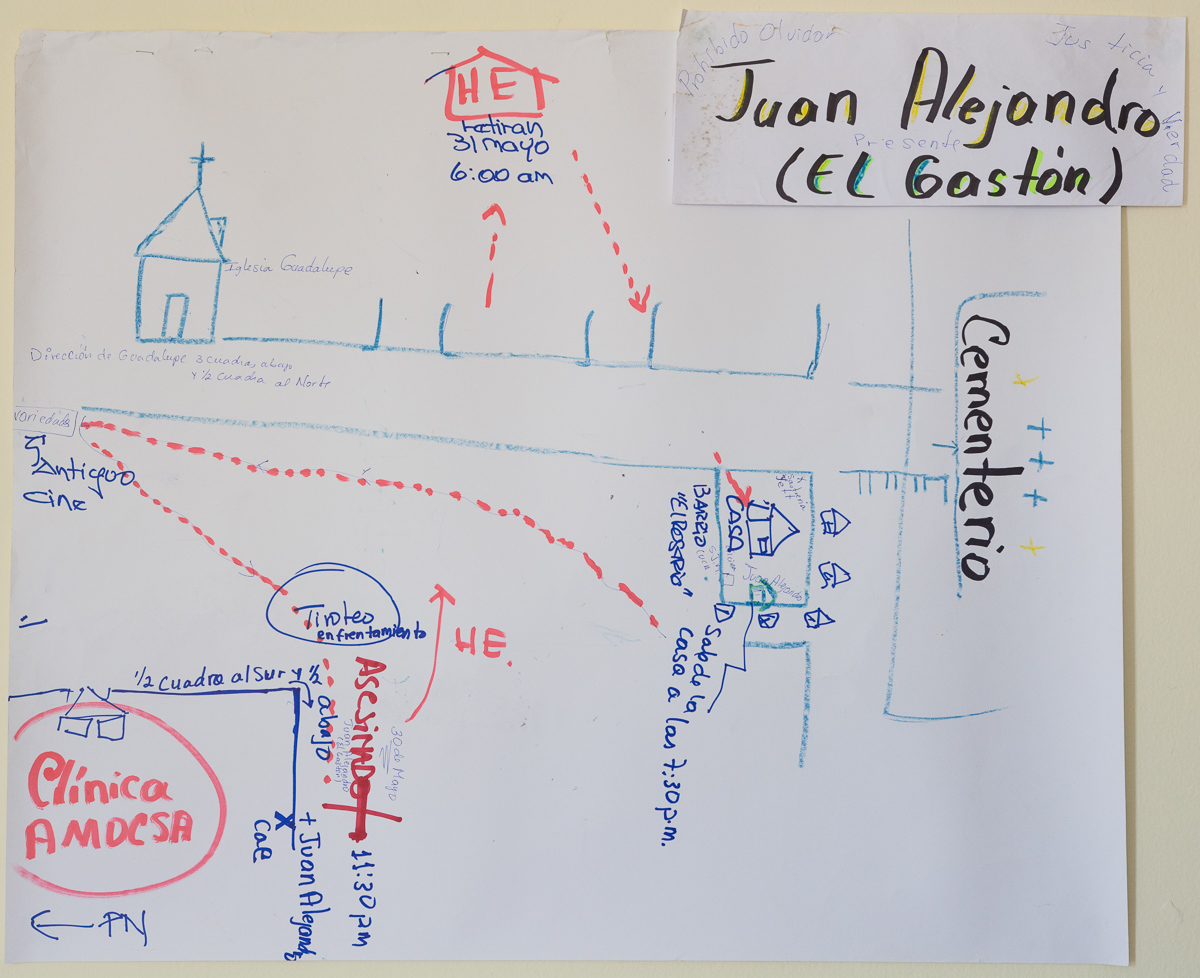 Prohibido Olvidar
Justicia y Verdad
Juan Alejandro
Presente
(EL Gastón)
HE
retiran
31 mayo
6:00 am
Iglesia Guadalupe
Dirección de Guadalupe 3 cuadras abajo
y 1/2 cuadra al Norte
Variedades
Antiguo
Cine
Cementerio
CASA
BARRIO
"El ROSARIO"
Juan Alejandro
Sale de la
casa a las 7:30 p.m.
Tiroteo
enfrentamiento
HE.
1/2 cuadra al Sur y 1/2
abajo
ASESINADO
30 de Mayo
Juan Alejandro
(El Gastón)
11:30 pm
Clínica
AMOCSA
+ Juan Alejandro
cae
PN